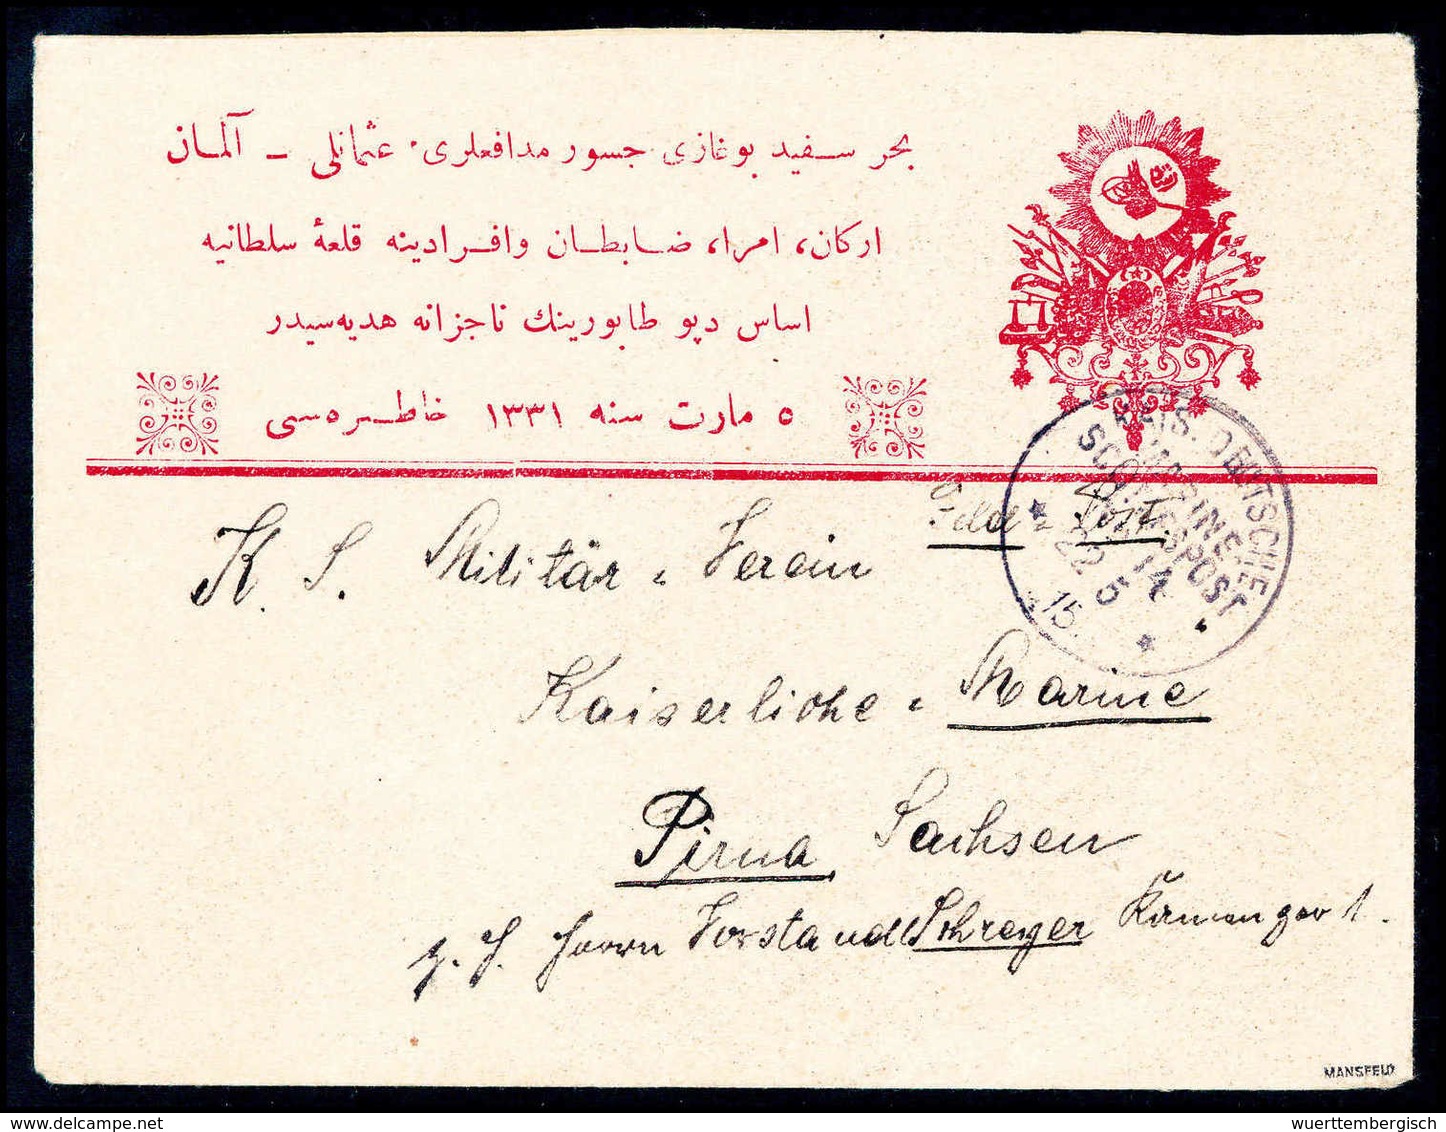 بحر سفید بوغازی جسور مدافعلری٠ عثمانلی ـ آلمان
اركان، امرا، ضابطان وافرادینه قلعهٔ سلطانیه
اساس دپو طابورینك ناچزانه هدیه‌سیدر
٥ مارت سنه ١٣٣١ خاطره‌سی
Feld = Post
KAIS. DEUTSCHE
MARINE
SCHIFFSPOST
14
22 5
15.
K. S. Militär = Verein
Kaiserliche = Marine
Pirna Sachsen
z. H. Herrn Vorstand Schreyer
MANSFELD
wuerttembergisch